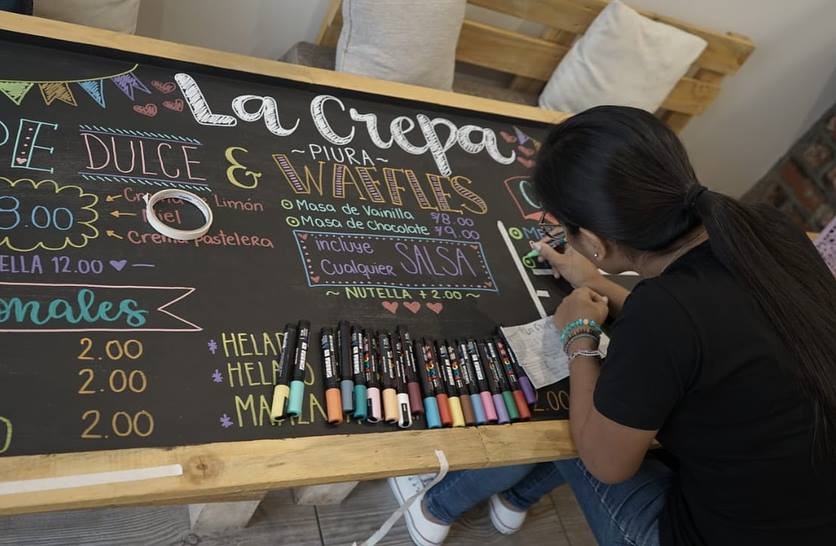 La Crepa
~PIURA~
PE DULCE & WAFFLES
8.00
Crema Limón
Miel
Crema pastelera
ELLA 12.00
Masa de Vainilla 8.00
Masa de Chocolate 9.00
incluye
Cualquier SALSA
~ NUTELLA +2.00 ~
onales
2.00
2.00
2.00
HELA
HEL
MA
2.00